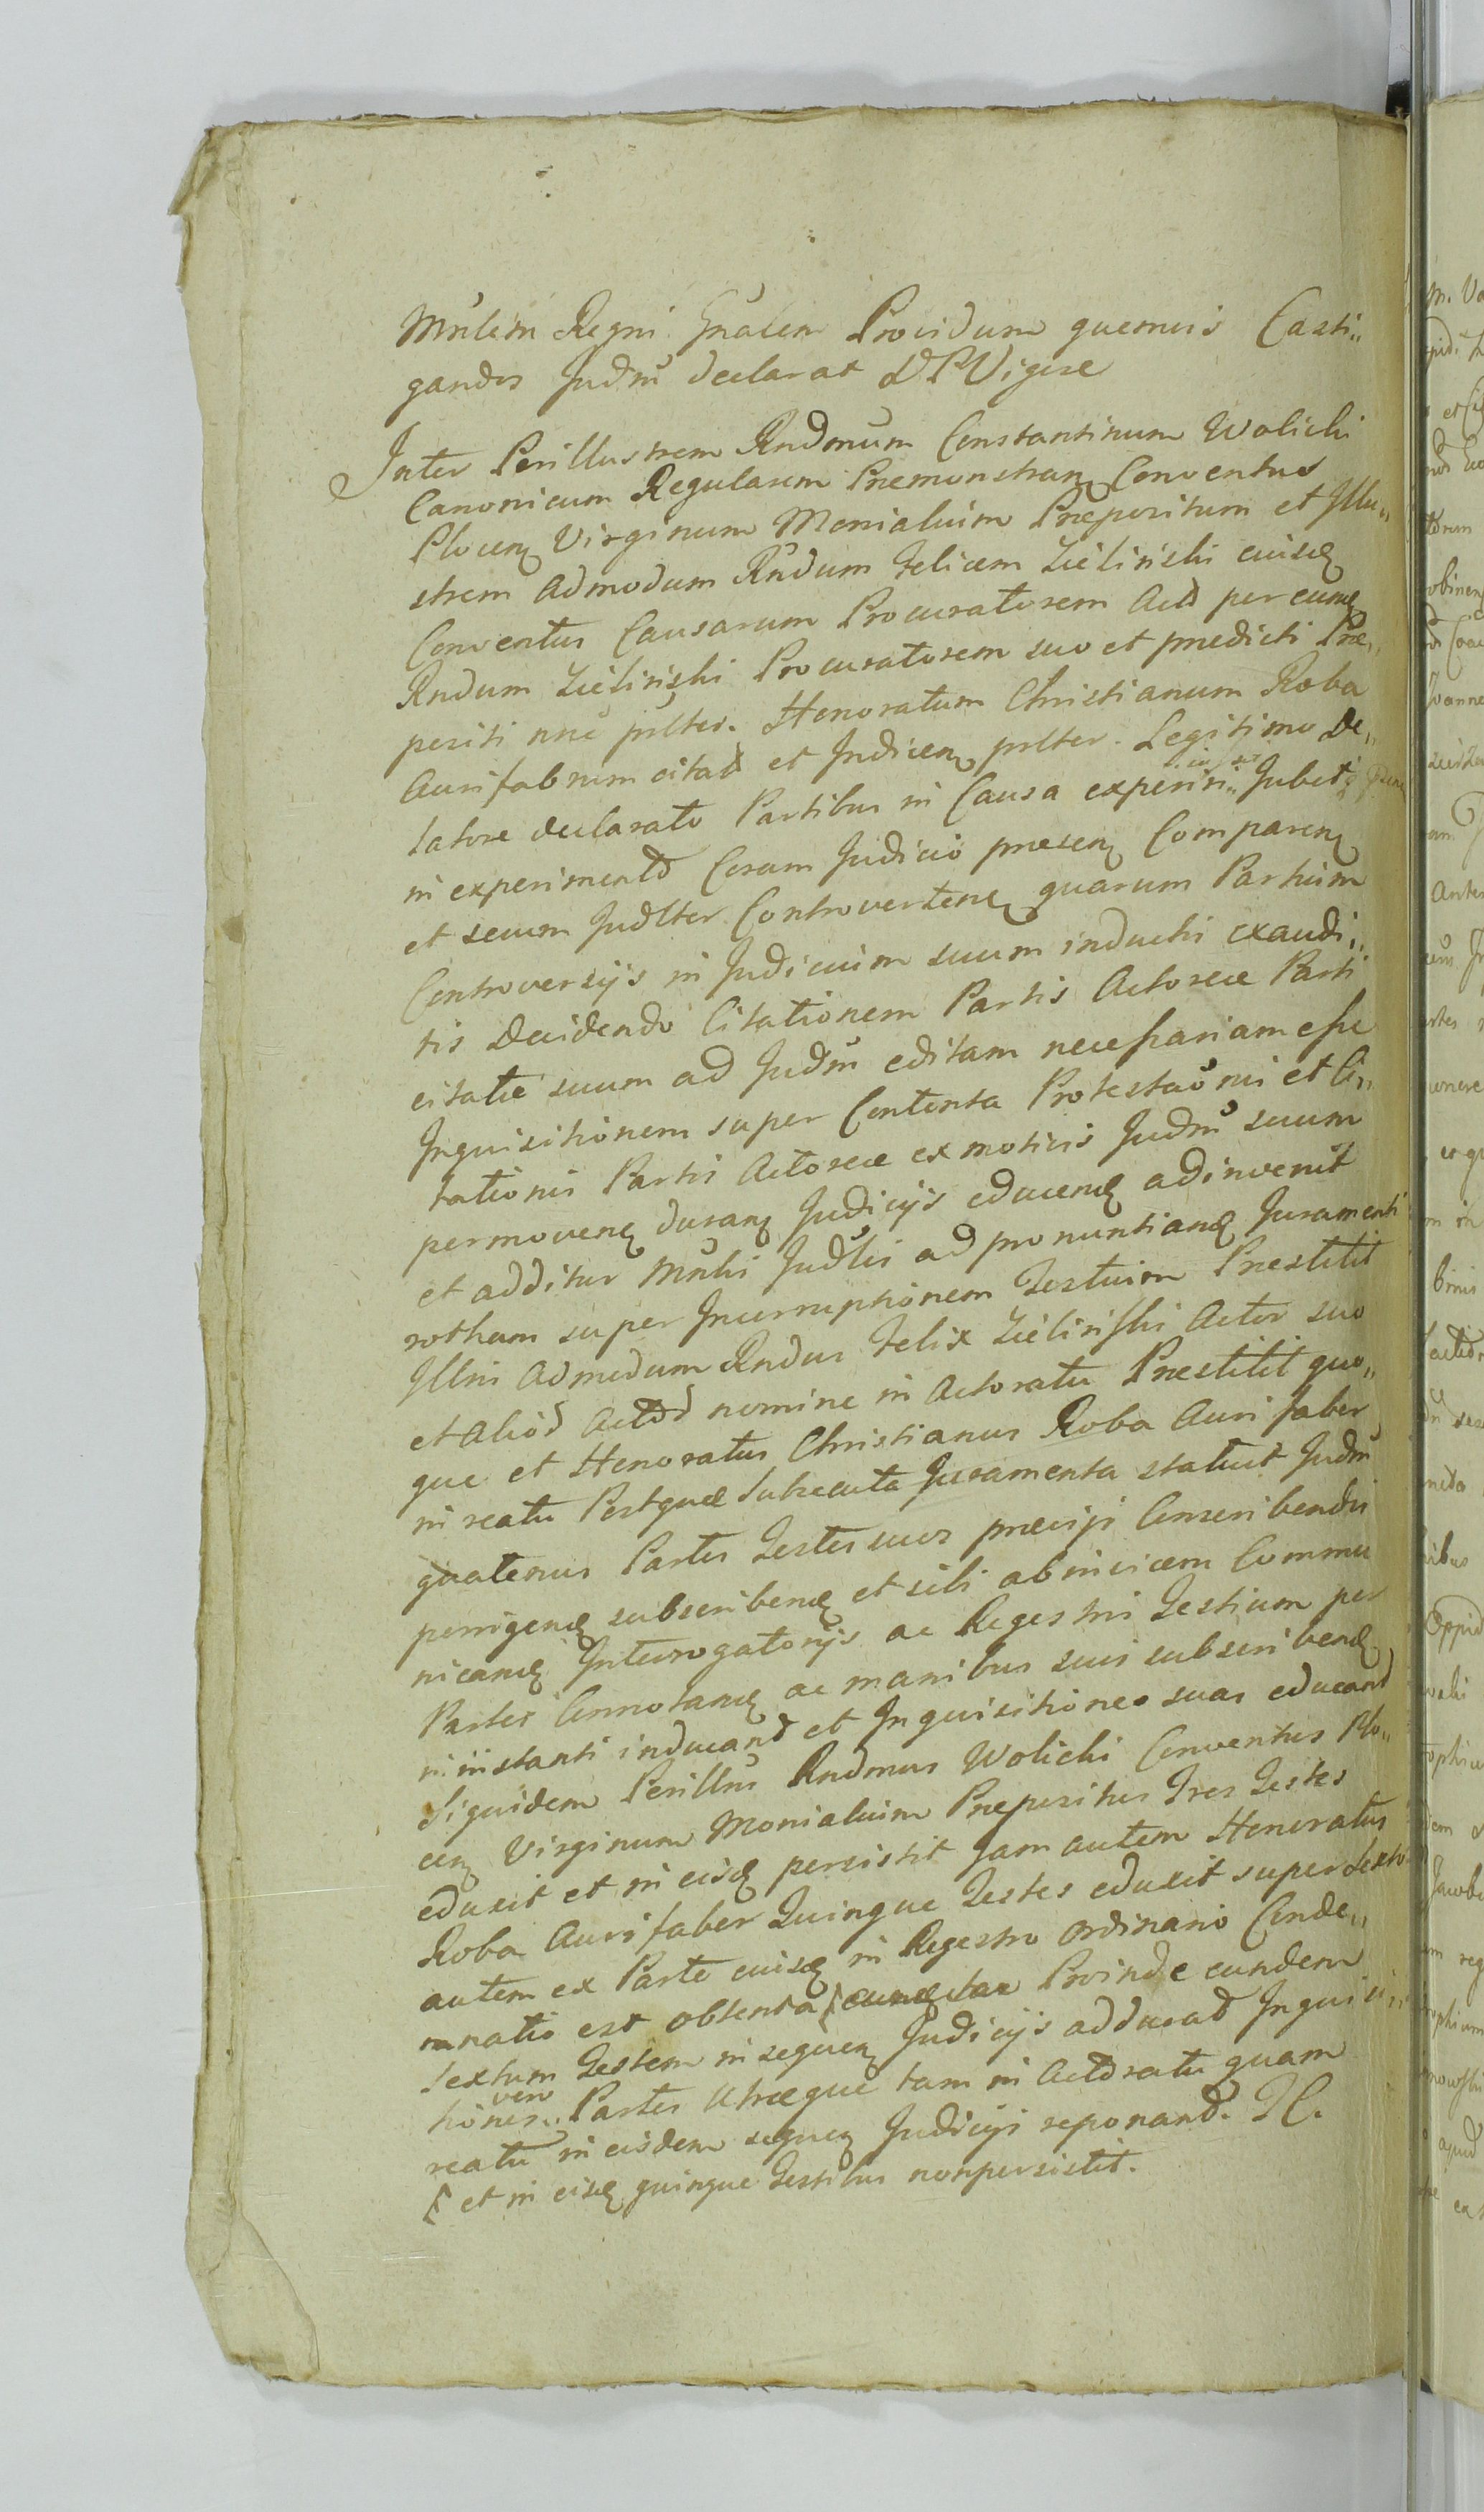 Mnlem Regni Gnalem Providum quemvis Casti„
gandos Judm declarat DPVigore
Inter Perillustrem Rndmum Constantinum Wolicki
Canonicum Regularem Premonstranȩ Conventus
Plocenȩ Virginum Monialium Præpositum et Illu„
strem Admodum Rndum Felicem Zieliński eiusdȩ
Conventus Causarum Procuratorem Actd per eundȩ
Rndum Zieliński Procuratorem suo et prædicti Præ„
positi nne prlter. Honoratum Christianum Roba
Aurifabrum citatd et Judicenȩ prlter. Legitimo De„
latore declarato Partibus in Causa experiri„ Jubet
in experimento Coram Judicio præsenȩ Comparenȩ
et secum Judlter Controvertenȩ quarum Partium
Controversijs in Judicium suum inductis exaudi„
tis Decidendo Citationem Partis Actoreæ Parti
citatæ suum ad Judm editam necessariam esse
Inquisitionem super Contenta Protestaonis et Ci„
tationis Partis Actoreæ ex motivis Judm suum
permovenȩ duranȩ Judicijs educendȩ adinvenit
et additur Mnlri Judlri ad pronuntiandȩ Juramenti
rotham super Incorruptionem Testium Præstitit
Illris Admodum Rndus Felix Zieliński Actor suo
et aliod Actod nomine in Actoratu Præstitit quo„
que et Honoratus Christianus Roba Aurifaber
in reatu Postquæ Subsecuta Juramenta statuit Judm
quatenus Partes Testes suos præcisi Conscribendi
porrigendȩ subscribendȩ et sibi abinvicem Commu
nicandȩ Interrogatorijs ac Regestri Testium per
Partes Connotandȩ ac manibus suis subscribendȩ
in instanti inducand et Inquisitiones suas educand
Siquidem Perillris Rndmus Wolicki Conventus Plo„
cenȩ Virginum Monialium Præpositus Tres Testes
eduxit et in eisdȩ persistit Jam autem Honoratus
Roba Aurifaber Quinque Testes eduxit super Sexto
autem ex Parte eiusdȩ in Regestro Ordinario Conde„
mnatio est obtenta Proinde eundem
Sextum Testem in sequenȩ Judicijs adducat Inquisi„
tiones„ vero Partes Utræque tam in Actoratu quam
reatu in eisdem sequenȩ Judicijs reponand.
et in eisdȩ quinque Testibus nonpersistit.